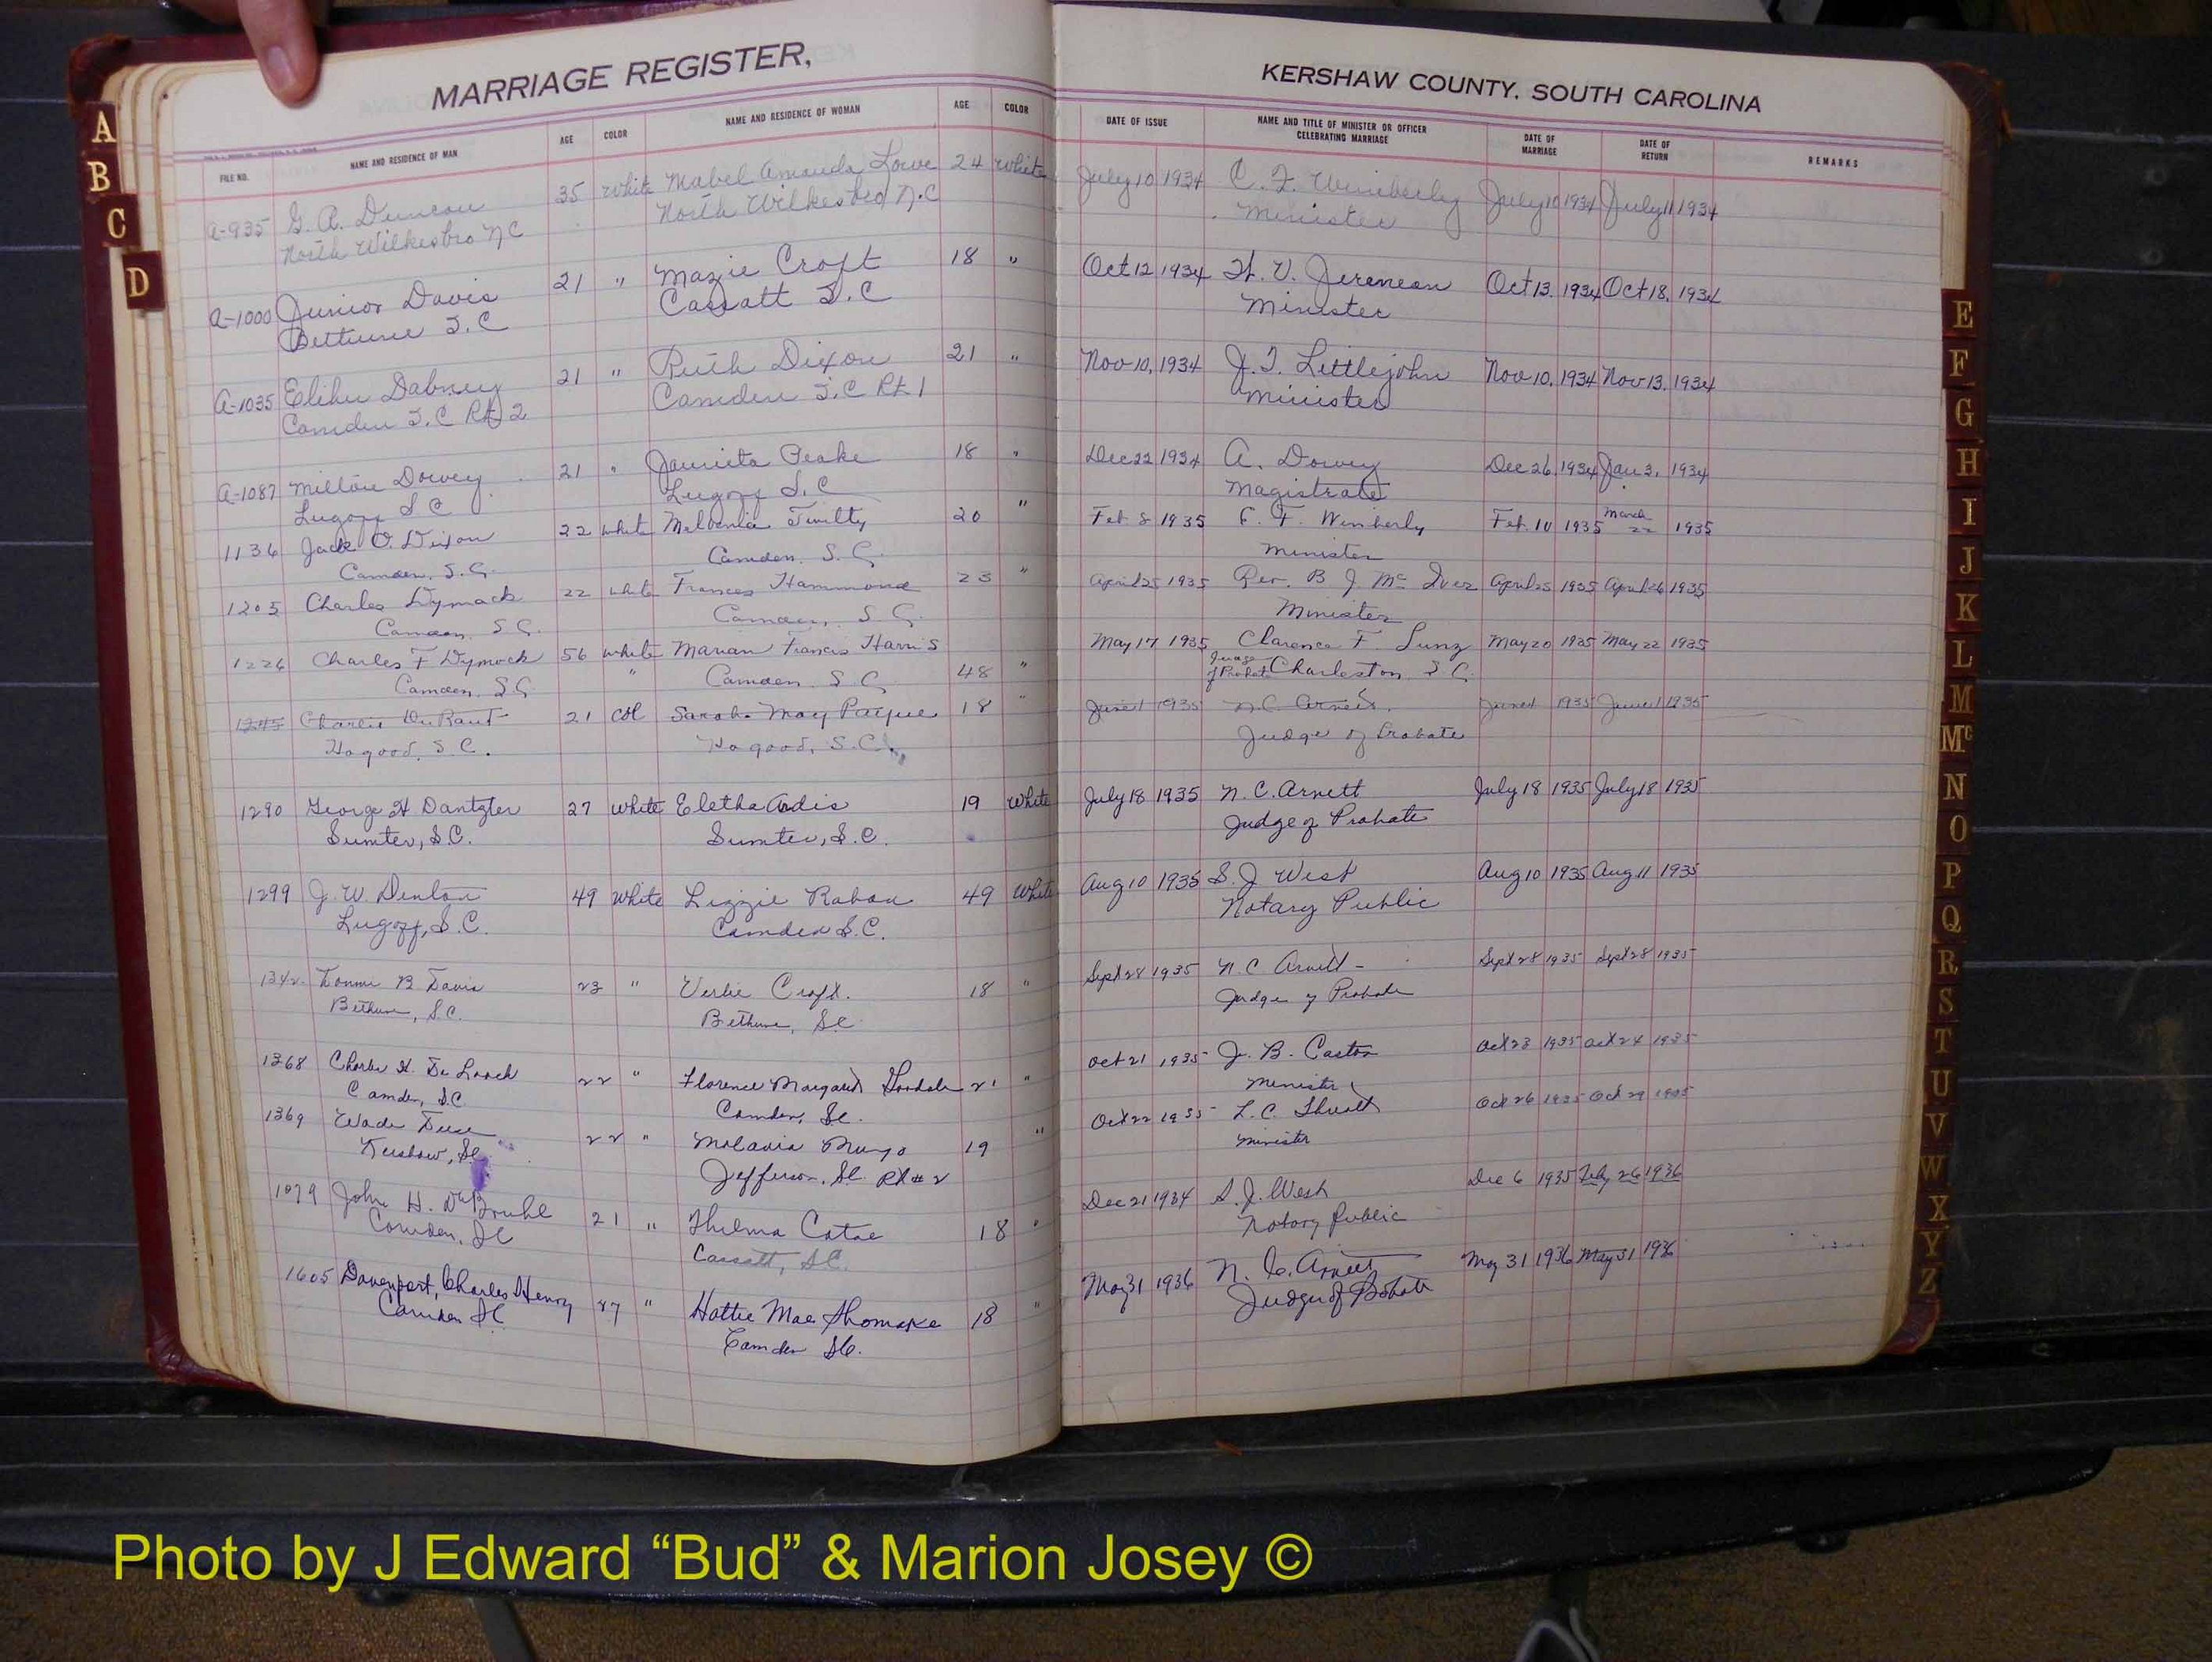 MARRIAGE REGISTER,
KERSHAW COUNTY, SOUTH CAROLINA
FILE NO. NAME AND RESIDENCE OF MAN AGE COLOR NAME AND RESIDENCE OF WOMAN AGE COLOR DATE OF ISSUE NAME AND TITLE OF MINISTER OR OFFICER CELEBRATING MARRIAGE DATE OF MARRIAGE DATE OF RETURN REMARKS
A-935 G. A. Duncan 35 White Mabel Amanda Lowe 24 White July 10 1934 C. F. Wimberley July 10 1934 July 11 1934
North Wilkesbro N C North Wilkesbro N.C Minister
A-1000 Junior Davis 21 " Mazie Croft 18 " Oct 12 1934 Oct 13. 1934 Oct 18, 1934
Bethune S.C Cassatt S.C Minister
A-1035 Elihu Dabney 21 " Ruth Dixon 21 " Nov 10, 1934 J. T. Littlejohn Nov 10, 1934 Nov 13, 1934
Camden S.C Rt 2 Camden S.C Rt 1 Minister
A-1087 Milton Dowey 21 " Peake 18 " Dec 22 1934 A. Dowey Dec 26, 1934 Jan 3, 1934
Lugoff S C Lugoff S.C Magistrate
1136 Jack O. Dixon 22 White 20 " Feb 8 1935 F. Wimberly Feb. 10 1935 March 22 1935
Camden, S.C. Camden, S.C. Minister
1205 Charles Dymack 22 White Frances Hammond 23 " April 25 1935 Rev. B J. Mc Iver April 25 1935 April 26 1935
Camden, S.C. Camden, S.C. Minister
1226 Charles F Dymock 56 White Marian Francis Harris May 17 1935 Clarence F. Lunz May 20 1935 May 22 1935
Camden, S.C. " Camden, S C. 48 " Judge of Probate Charleston S C.
1245 Charles DuRant 21 Col Sarah May 18 " June 1 1935 June 1 1935 June 1 1935
Hagood, S.C. Hagood, S.C. Judge of Probate
1290 George H Dantzler 27 White Eletha Ardis 19 White July 18 1935 N. C. Arnett July 18 1935 July 18 1935
Sumter, S.C. Sumter, S.C. Judge of Probate
1299 J. W. Denton 49 White Lizzie Rabon 49 White Aug 10 1935 S. J West Aug 10 1935 Aug 11 1935
Lugoff, S.C. Camden S.C. Notary Public
1342 B Davis 23 " Verlie Croft. 18 " Sept 28 1935 N. C Arnett Sept 28 1935 Sept 28 1935
Bethune, S.C. Bethune, SC Judge of Probate
1368 Charles H. De Loach 22 " Florence Margaret 21 " Oct 21 1935 J. B. Caston Oct 23 1935 Oct 24 1935
Camden, S.C. Camden, SC. Minister
1369 Wade 22 " 19 " Oct 22 1935 L. C. Oct 26 1935 Oct 29 1935
Kershaw, SC Jefferson, SC. Rt # 2 Minister
1079 John H. DuBruhl 21 " Thelma Catoe 18 " Dec 21 1934 S. J. West Dec 6 1935 Feby 26 1936
Camden, SC Cassatt, SC. Notary Public
1605 Davenport, Charles Henry 27 " Hattie Mae 18 " May 31 1936 N. C. Arnett May 31 1936 May 31 1936
Camden SC Camden SC. Judge of Probate
A
B
C
D
E
F
G
H
I
J
K
L
M
Mc
N
O
P
Q
R
S
T
U
V
W
X
Y
Z
Photo by J Edward “Bud” & Marion Josey ©